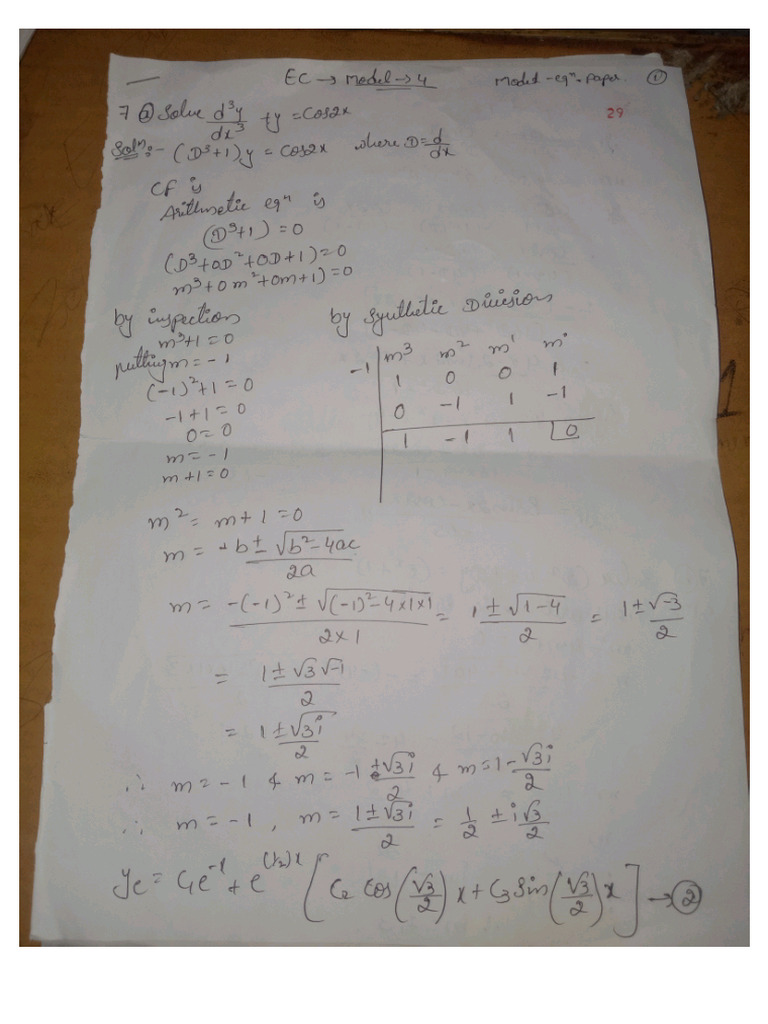 EC → Model → 4 Model - eqn. paper. ①
7 ⓐ Solve d³y/dx³ + y = Cos2x
29
Solⁿ:- (D³+1)y = Cos2x where D = d/dx
CF is
Arithmetic eqⁿ is
(D³+1) = 0
(D³+0D²+0D+1) = 0
m³+0m²+0m+1) = 0
by inspection
m³+1 = 0
putting m = -1
(-1)²+1 = 0
-1+1 = 0
0 = 0
m = -1
m+1 = 0
by Synthetic Division
m³ m² m¹ m°
-1 | 1 0 0 1
0 -1 1 -1
1 -1 1 0
m² = m+1 = 0
m = -b ± √(b²-4ac) / 2a
m = -(-1)² ± √((-1)²-4×1×1) / 2×1 = 1 ± √(1-4) / 2 = 1 ± √-3 / 2
= 1 ± √3 √-1 / 2
= 1 ± √3 i / 2
∴ m = -1 & m = -1 ± √3 i / 2 & m = 1 - √3 i / 2
∴ m = -1, m = 1 ± √3 i / 2 = 1/2 ± i √3/2
yc = C₁e⁻¹ + e^(1/2)x [C₂ Cos(√3/2)x + C₃ Sin(√3/2)x] → ②